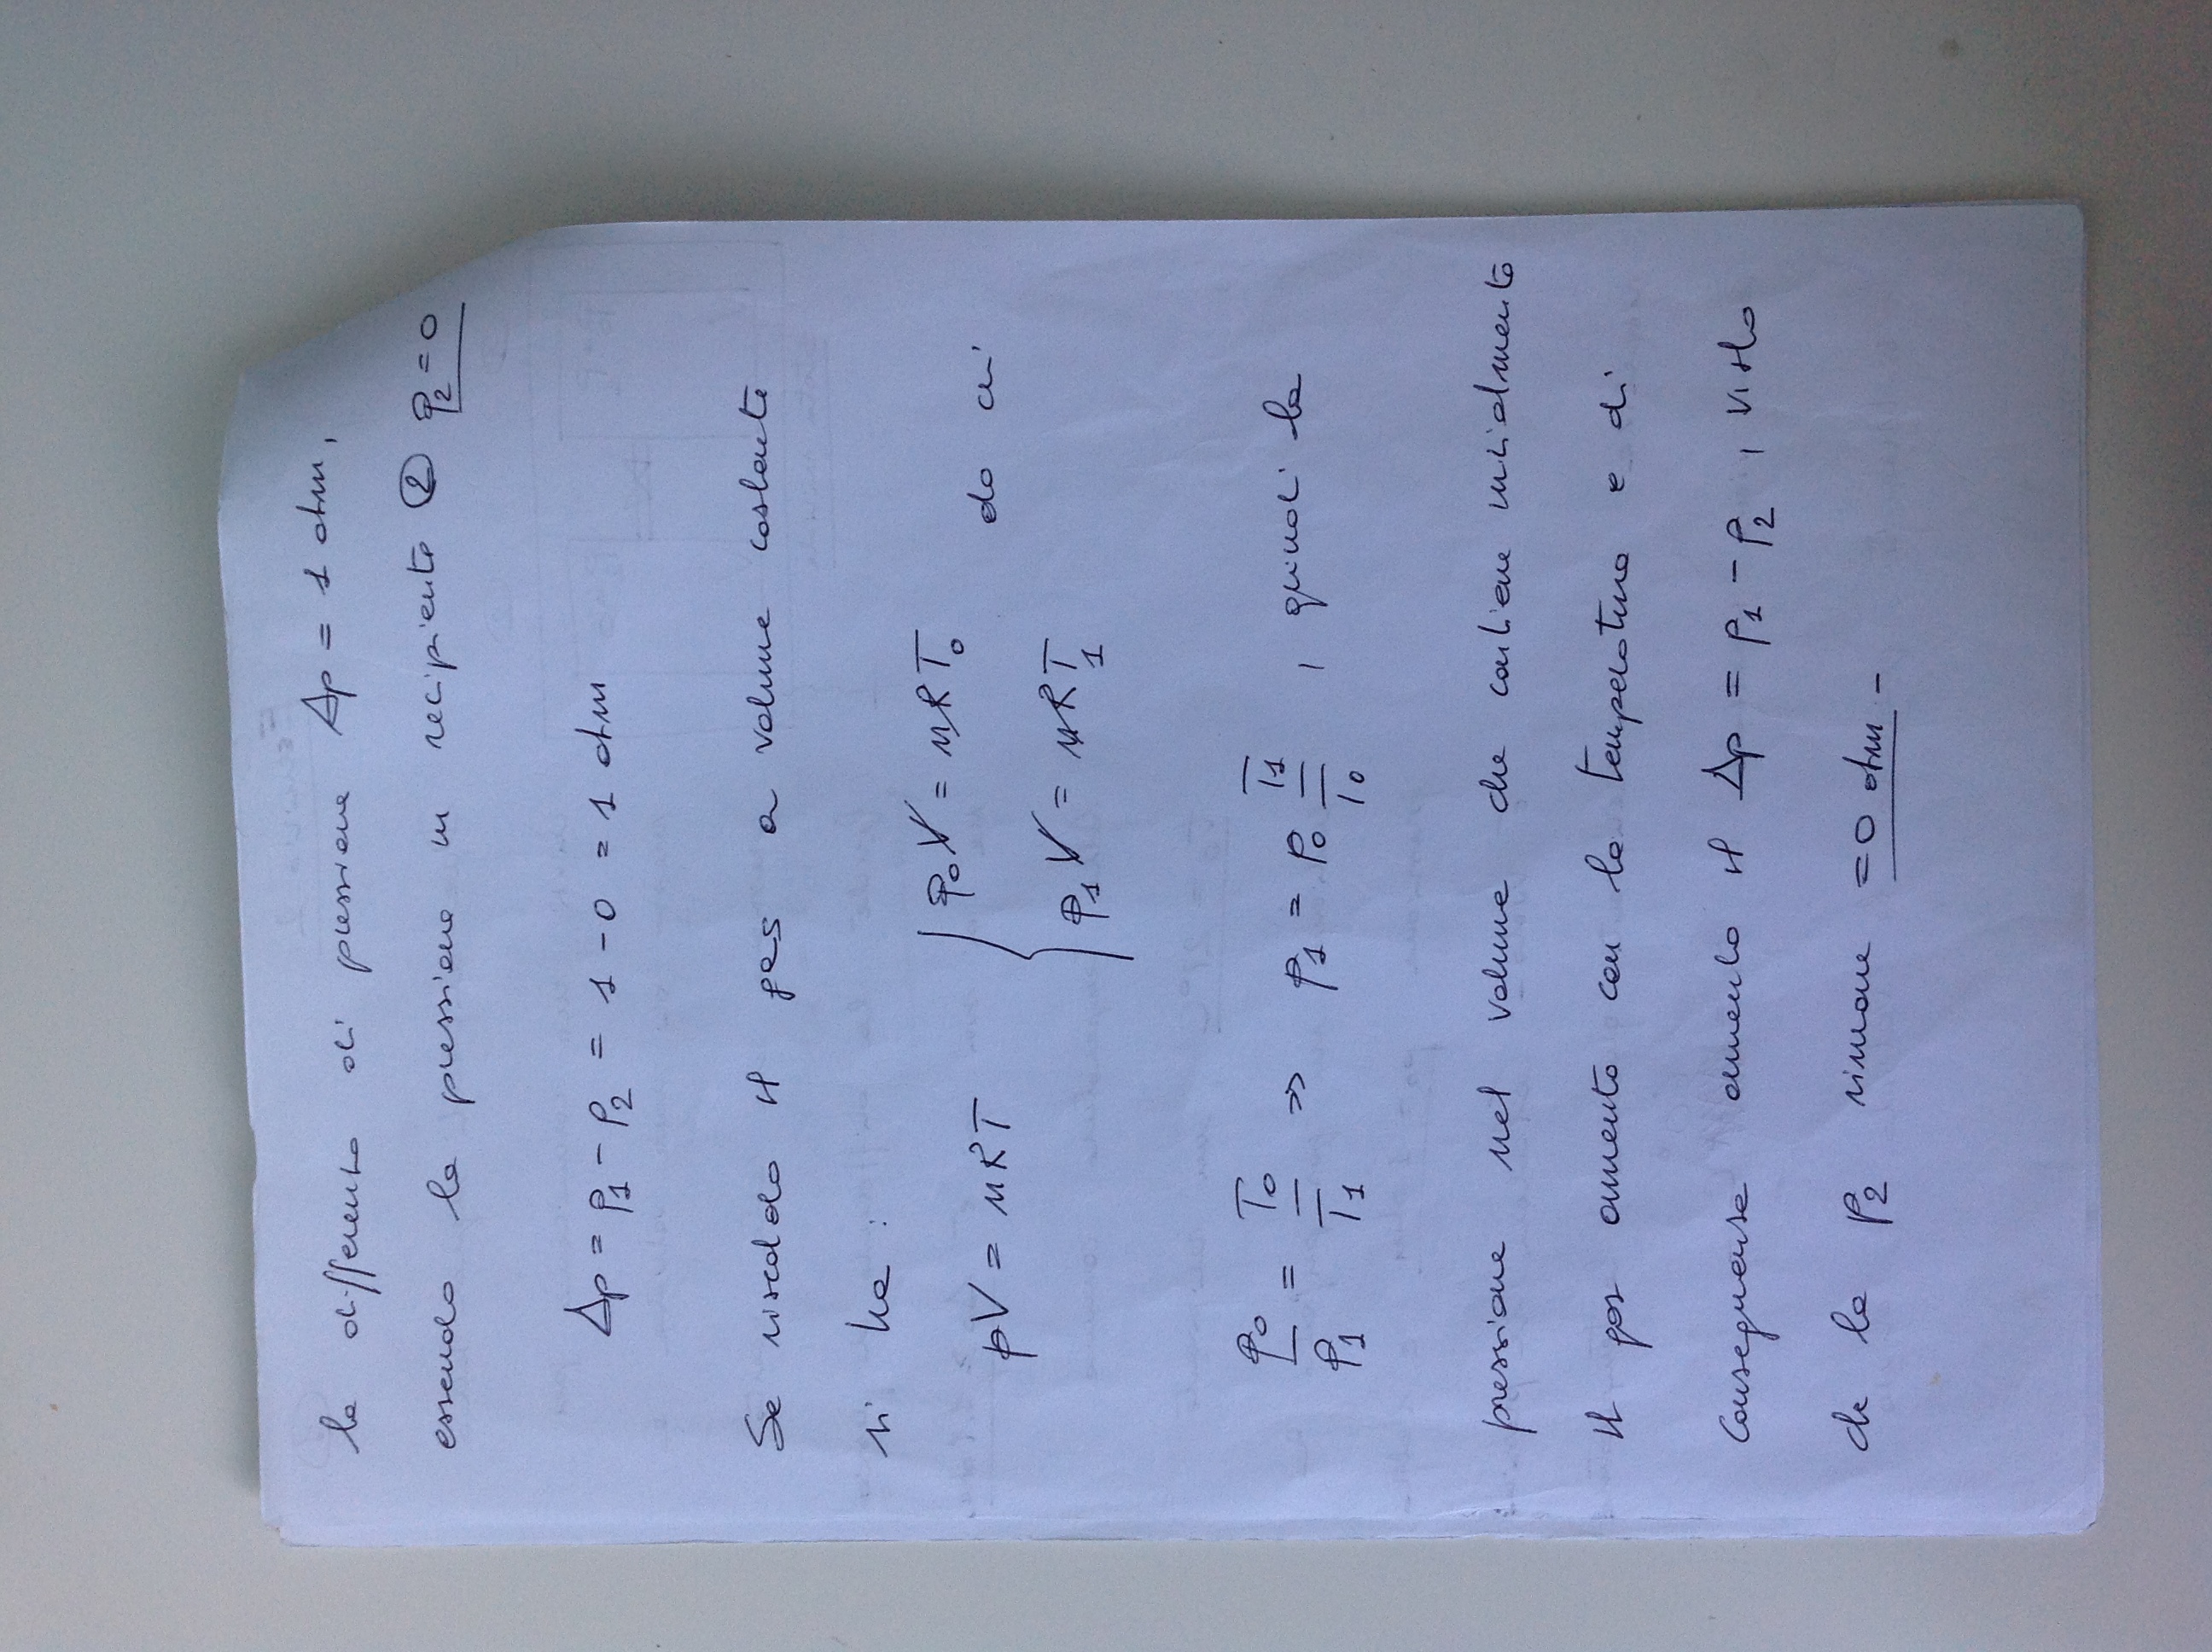 la differenza di pressione Δp = 1 atm,
essendo la pressione in recipiente ② p₂ = 0
Δp = p₁ - p₂ = 1 - 0 = 1 atm
Se riscaldo il gas a volume costante
si ha :
pV = nRT { p₀V = nRT₀ da cui
p₁V = nRT₁
p₀/p₁ = T₀/T₁ => p₁ = p₀ T₁/T₀ , quindi la
pressione nel volume che contiene inizialmente
il gas aumenta con la temperatura e di
conseguenza aumenta il Δp = p₁ - p₂ , visto
che la p₂ rimane = 0 atm -